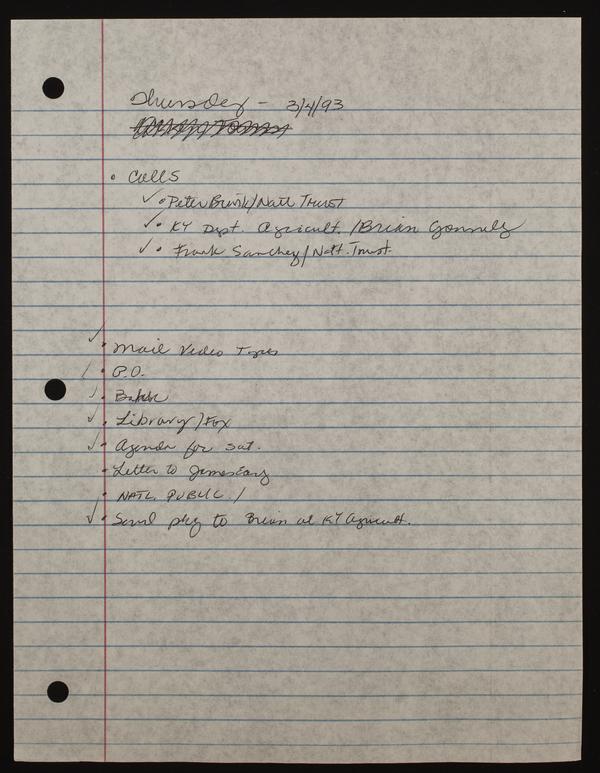 Thursday - 3/4/93
• Calls
✓ • Peter Brink/Natl Trust
✓ • KY Dept. Agricult. /Brian
✓ • Frank Sanchez/Natl. Trust.
✓ • Mail Video Tapes
✓ • P.O.
✓ •
✓ • Library/Fox
✓ • Agenda for Sat.
• Letter to James Earz
• NATL. PUBLIC. /
✓ • Send pkg to Brian at KY Agricult.